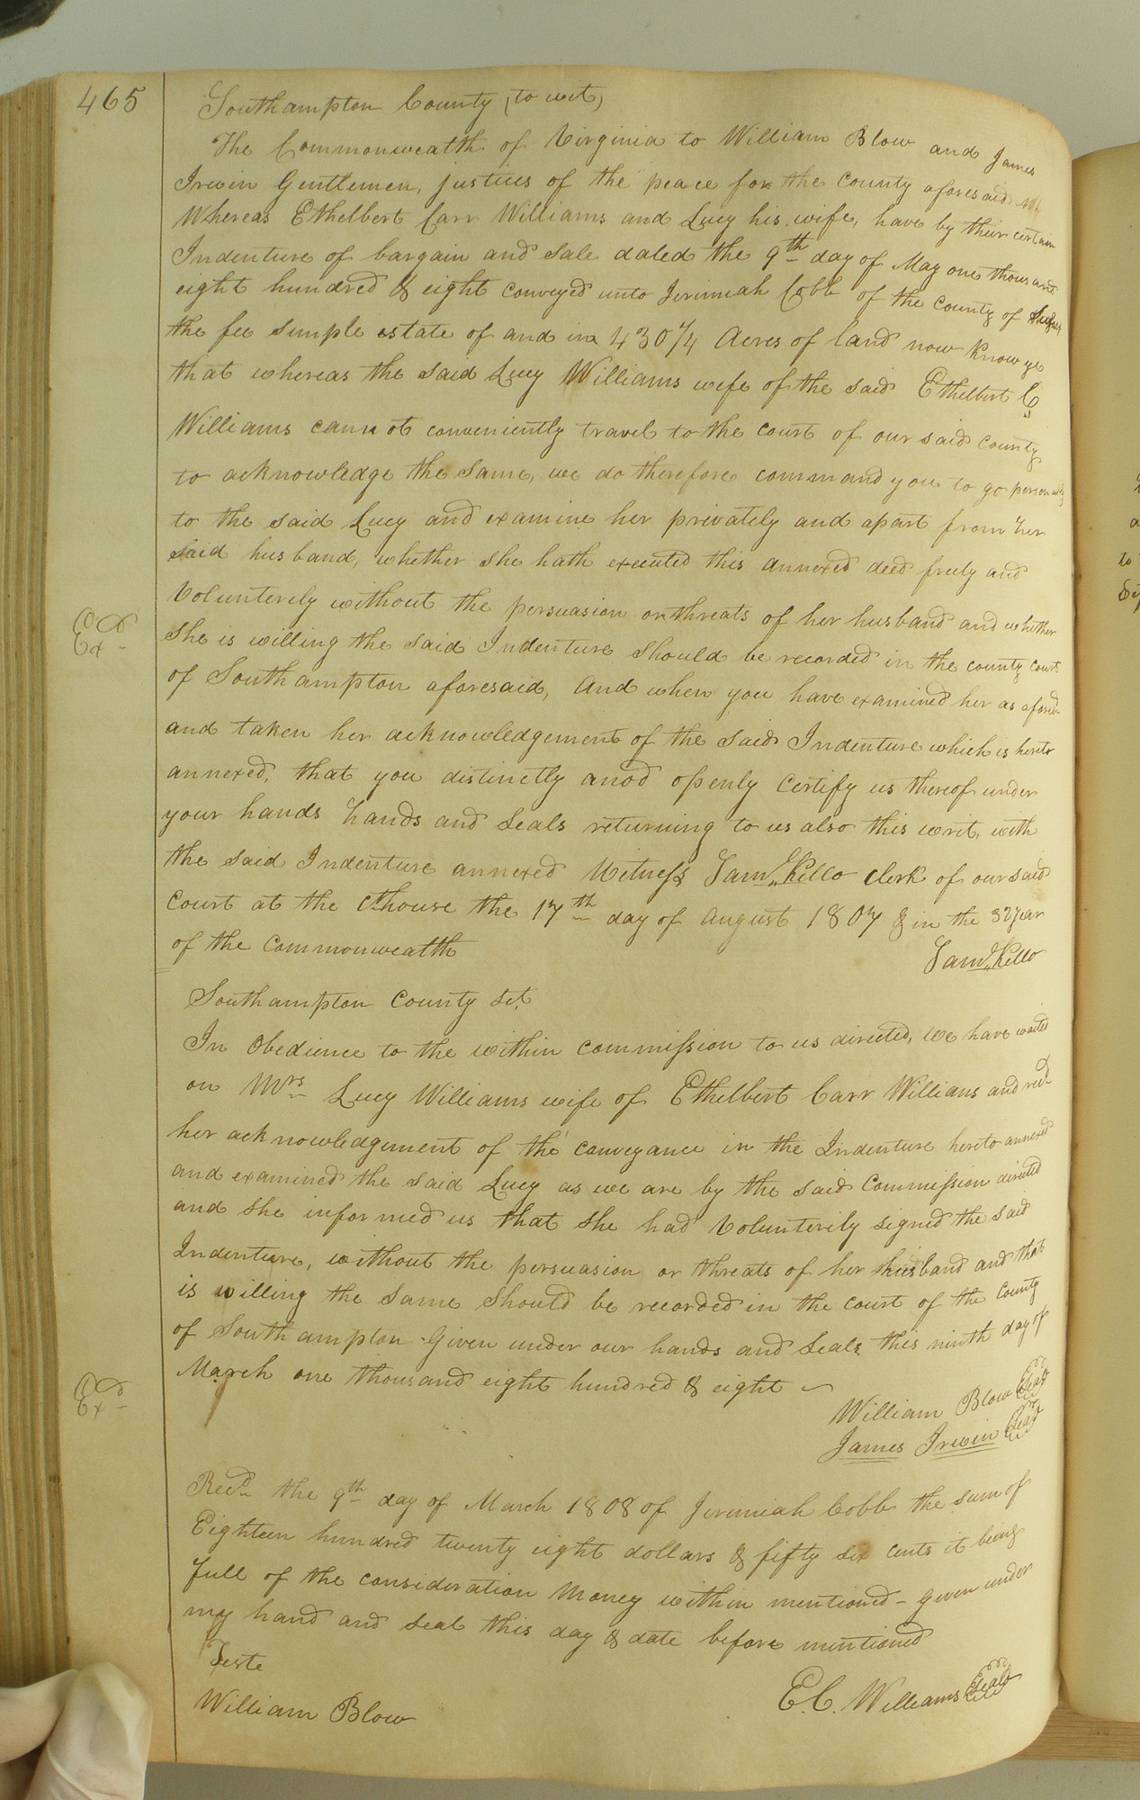 465
Southampton County, to wit,
The Commonwealth of Virginia to William Blow and James
Irwin Gentlemen, justices of the peace for the county aforesaid
Whereas Ethelbert Carr Williams and Lucy his wife, have by their certain
Indenture of bargain and sale dated the 9th day of May one thousand
eight hundred & eight conveyed unto Jerimiah Cobb of the county of
the fee simple estate of and in 430 1/4 Acres of land now know ye
that whereas the said Lucy Williams wife of the said Ethelbert C
Williams cannot conveniently travel to the court of our said county
to acknowledge the same, we do therefore command you to go personally
to the said Lucy and examine her privately and apart from her
said husband, whether she hath executed this annexed deed freely and
Volunterely without the persuasion or threats of her husband and whether
Exd
she is willing the said Indenture should be recorded in the county court
of Southampton aforesaid, And when you have examined her as aforesd
and taken her acknowledgement of the said Indenture which is hereto
annexed, that you distinctly anod openly certify us thereof under
your hands hands and seals returning to us also this writ, with
the said Indenture annexed Witness Saml Kello clerk of our said
Court at the Cthouse the 17th day of August 1807 & in the 32 year
of the Commonwealth
Saml Kello
Southampton County Sct.
In Obedience to the within commission to us directed, we have waited
on Mrs Lucy Williams wife of Ethelbert Carr Willians and recd
her acknowledgement of the conveyance in the Indenture hereto annexed
and examined the said Lucy as we are by the said Commission directed
and she informed us that she had Volunterily signed the said
Indenture, without the persuasion or threats of her husband and that
is willing the same should be recorded in the court of the County
of Southampton Given under our hands and seals this ninth day of
March one thousand eight hundred & eight
Exd
William Blow Seal
James Irwin Seal
Recd the 9th day of March 1808 of Jeremiah Cobb the sum of
Eighteen hundred twenty eight dollars & fifty six cents it being
full of the consideration Money within mentioned - given under
my hand and seal this day & date before mentioned
Teste
William Blow
E. C. Williams Seal